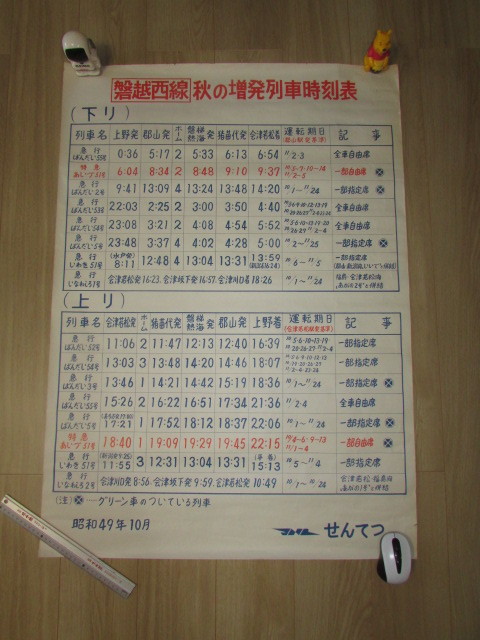 磐越西線 秋の増発列車時刻表
(下り)
列車名 上野発 郡山発 ホーム 磐梯熱海発 猪苗代発 会津若松着 運転期日 記事
急行 ばんだい55号 0:36 5:17 2 5:33 6:13 6:54 11/2・3 全車自由席
特急 あいづ51号 6:04 8:34 2 8:48 9:10 9:37 一部自由席
急行 ばんだい2号 9:41 13:09 4 13:24 13:48 14:20 10/1〜11/24 一部指定席
急行 ばんだい53号 22:03 2:25 2 3:00 3:50 4:40 全車自由席
急行 ばんだい54号 23:08 3:21 2 4:08 4:54 5:52 全車自由席
急行 ばんだい5号 23:48 3:37 4 4:02 4:28 5:00 10/2〜11/25 一部指定席
急行 いわき51号 (水戸発) 8:11 12:48 4 13:04 13:31 13:59 10/6〜11/5 一部指定席
急行 いなわしろ1号 会津若松発16:23. 会津坂下発16:57. 会津川口着18:26 10/1〜11/24
(上り)
列車名 会津若松発 ホーム 猪苗代発 磐梯熱海発 郡山発 上野着 運転期日 記事
急行 ばんだい52号 11:06 2 11:47 12:13 12:40 16:39 一部指定席
急行 ばんだい54号 13:03 3 13:48 14:20 14:46 18:07 一部指定席
急行 ばんだい3号 13:46 1 14:21 14:42 15:19 18:36 10/1〜11/24 一部指定席
急行 ばんだい55号 15:26 2 16:22 16:51 17:34 21:36 11/2・4 全車自由席
急行 ばんだい5号 17:21 1 17:52 18:12 18:37 22:00 10/1〜11/24 一部指定席
特急 あいづ51号 18:40 1 19:09 19:29 19:45 22:15 一部自由席
急行 いわき51号 11:55 3 12:31 13:04 13:31 15:13 10/5〜11/4 一部指定席
急行 いなわしろ2号 会津川口発8:56. 会津坂下発9:59. 会津若松着10:49 10/1〜11/24
(注) ―グリーン車のついている列車
昭和49年10月
JNR せんてつ